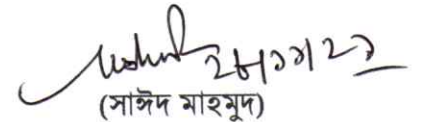 ২৮।১১।২১
(সাঈদ মাহমুদ)